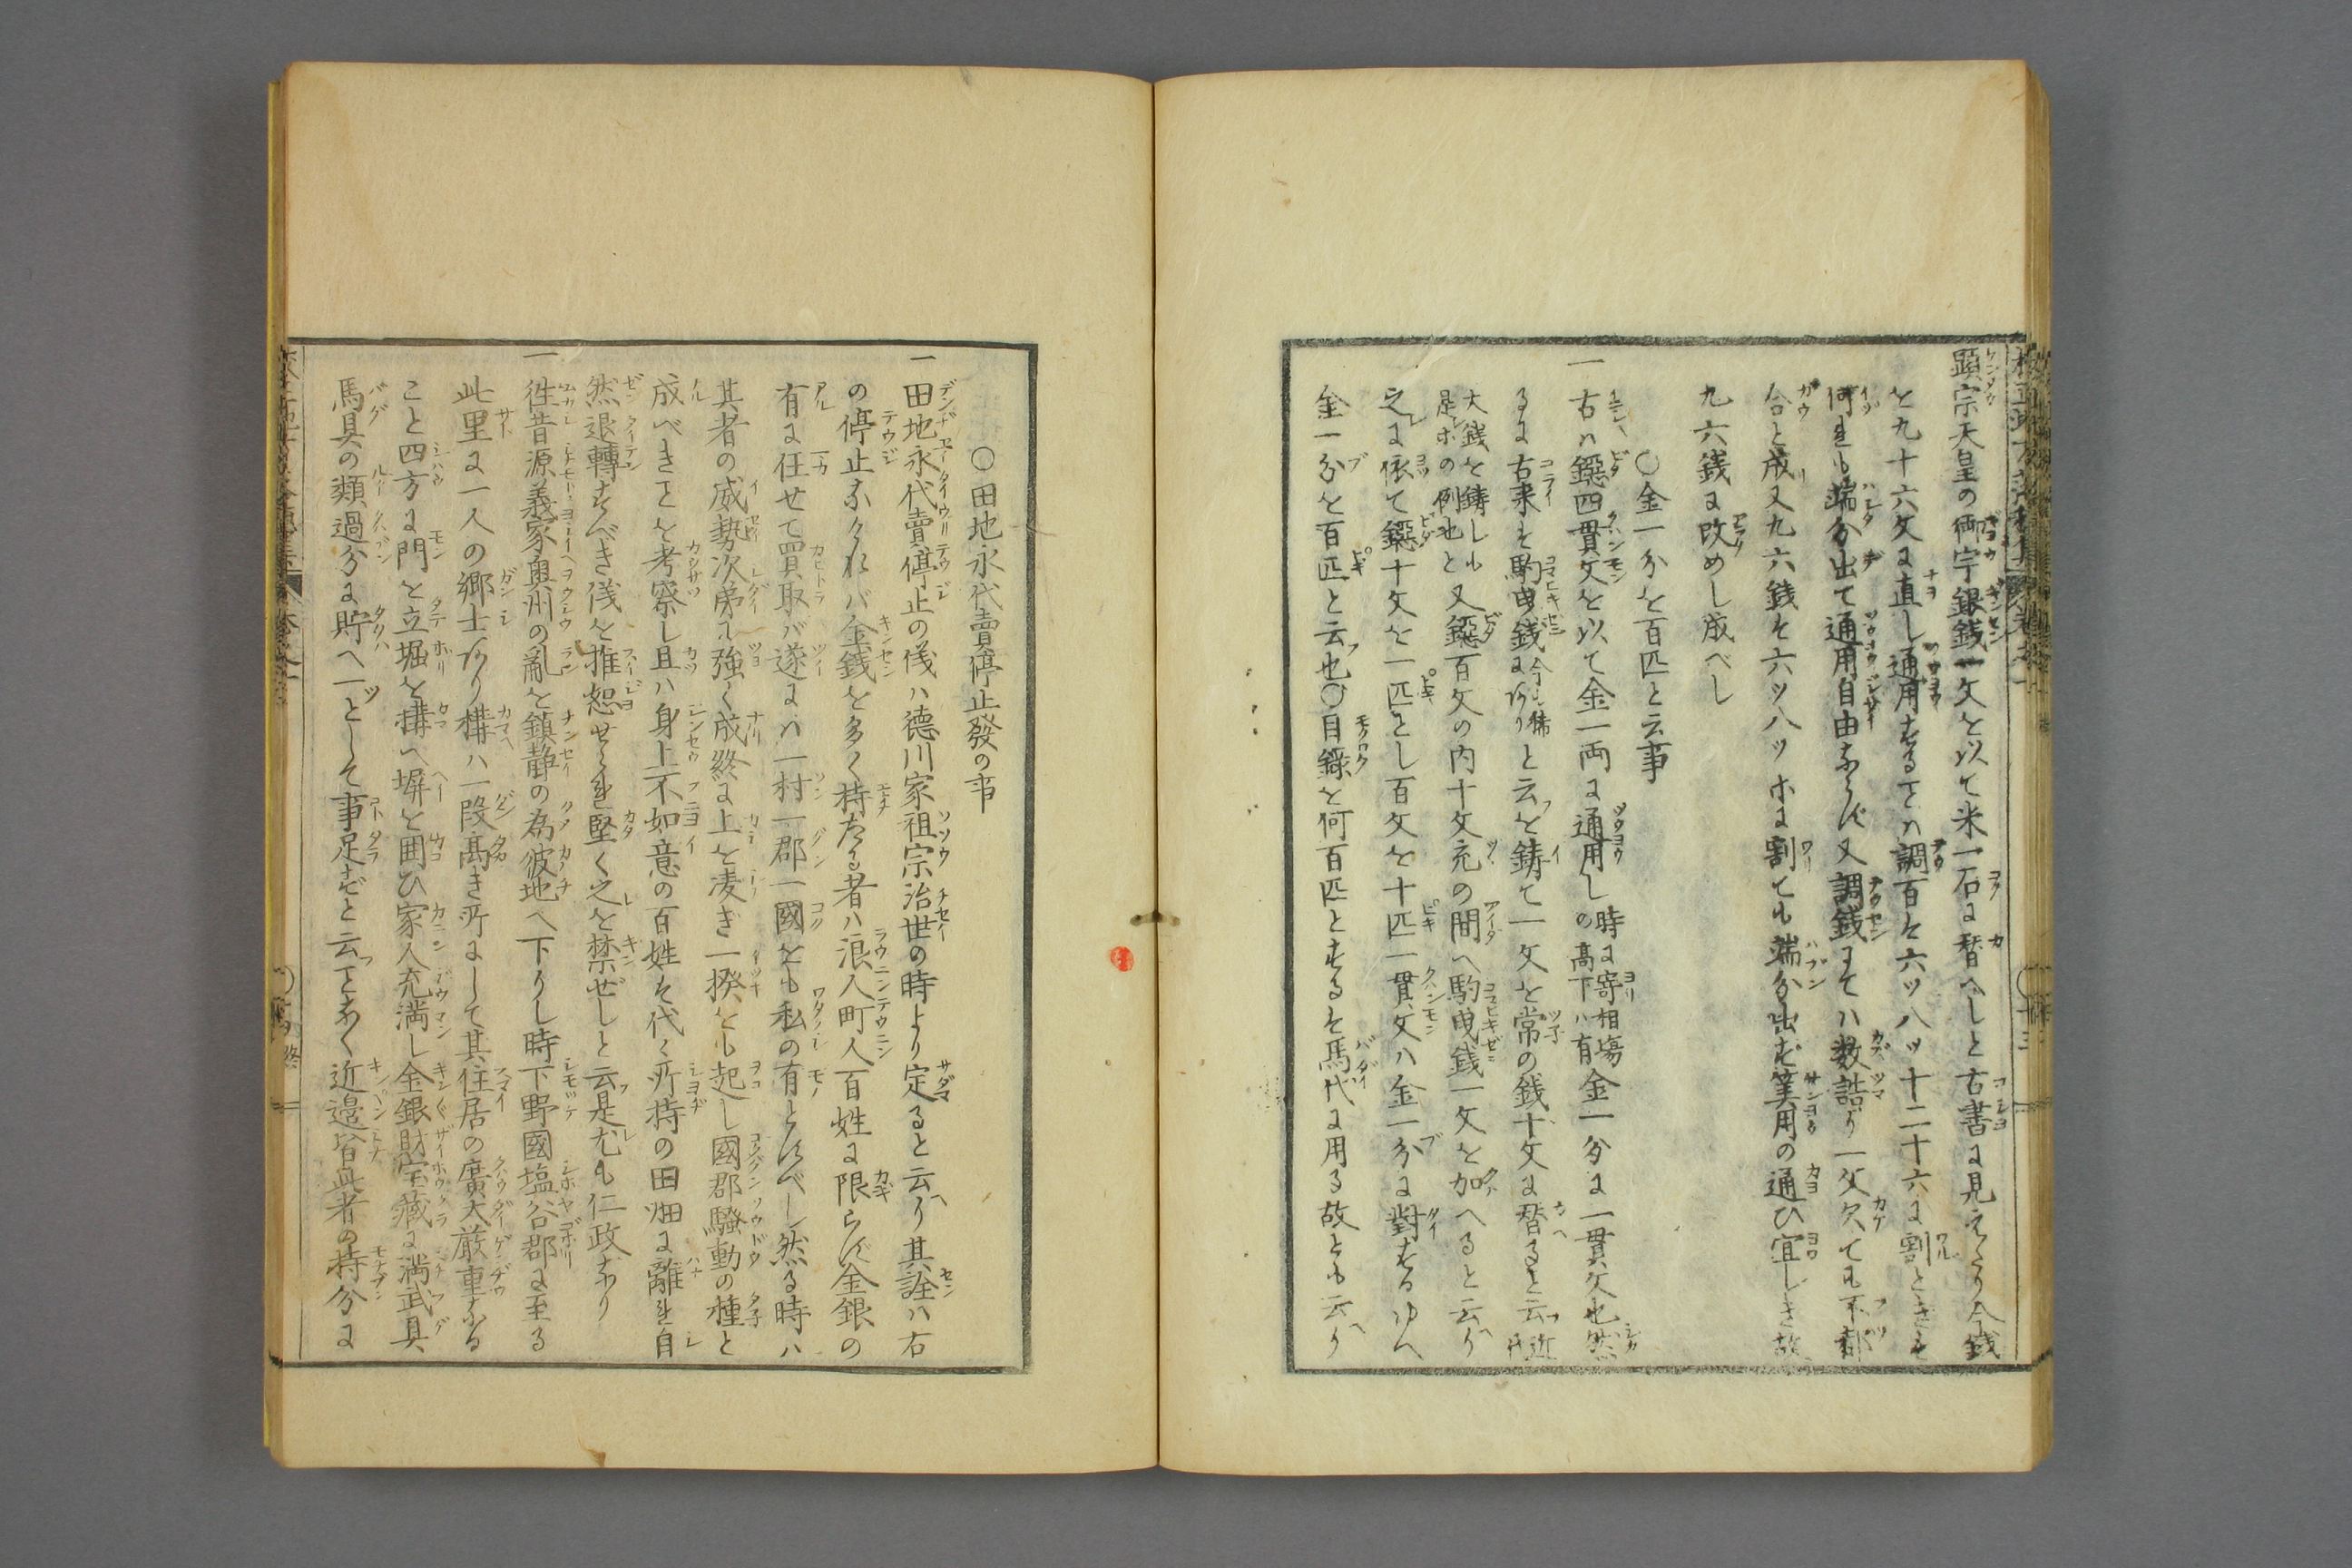 顕宗天皇の御宇銀銭一文を以て米一石に替へしと古書に見えたり今銭
を九十六文に直し通用するとは調百を六ツ八ツ十二十六に割ときは
何れも端分出て通用自由ならず又調銭にては数詰り一文欠ても不都
合と成又九六銭は六ツ八ツ等に割ても端分出ず算用の通ひ宜しき故
九六銭に改めし成べし
○金一分を百匹と云事
一古ハ鐚四貫文を以て金一両に通用し時に寄相場の高下ハ有金一分に一貫文也然
るに古来は駒曳銭今ニ佛ニありと云フを鋳て一文を常の銭十文に替ると云近代
大銭を鋳しも是等の例也と又鐚百文の内十文充の間へ駒曳銭一文を加へると云り
之に依て鐚十文を一匹とし百文を十匹一貫文ハ金一分に對するゆへ
金一分を百匹と云也○目録を何百匹とするは馬代に用る故とも云り
○田地永代賣停止發の事
一田地永代賣停止の儀ハ徳川家祖宗治世の時より定ると云り其詮ハ右
の停止なくれバ金銭を多く持たる者ハ浪人町人百姓に限らず金銀の
有に任せて買取バ遂にハ一村一郡一國をも私の有とすべし然る時ハ
其者の威勢次第に強く成終に上を凌ぎ一揆をも起し國郡騒動の種と
成べきことを考察し且ハ身上不如意の百姓は代々所持の田畑に離れ自
然退轉すべき儀を推恕せられ堅く之を禁ぜしと云是尤も仁政なり
一徃昔源義家奥州の亂を鎮静の為彼地へ下りし時下野國塩谷郡に至る
此里に一人の郷士あり構ハ一段高き所にして其住居の廣大厳重なる
こと四方に門を立堀を構へ塀を囲ひ家人充満し金銀財宝藏に満武具
馬具の類過分に貯へ一として事足ずと云ことなく近邉皆此者の持分に